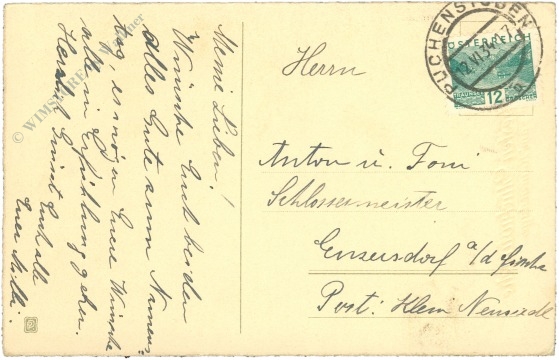 Meine Lieben!
Wünsche Euch beiden
Alles Gute zum Namens-
tag, es mögen Euere Wünsche
alle in Erfüllung gehen.
Herzlich Grüsst Euch alle
Euer Milli.
PUCHENSTUBEN
12.VI.34
ÖSTERREICH
12
GROSCHEN
Herrn
Anton u. Toni
Schlossermeister
Enzersdorf a/d Fischa
Post: Klein Neusiedl
© WIMSHIRE